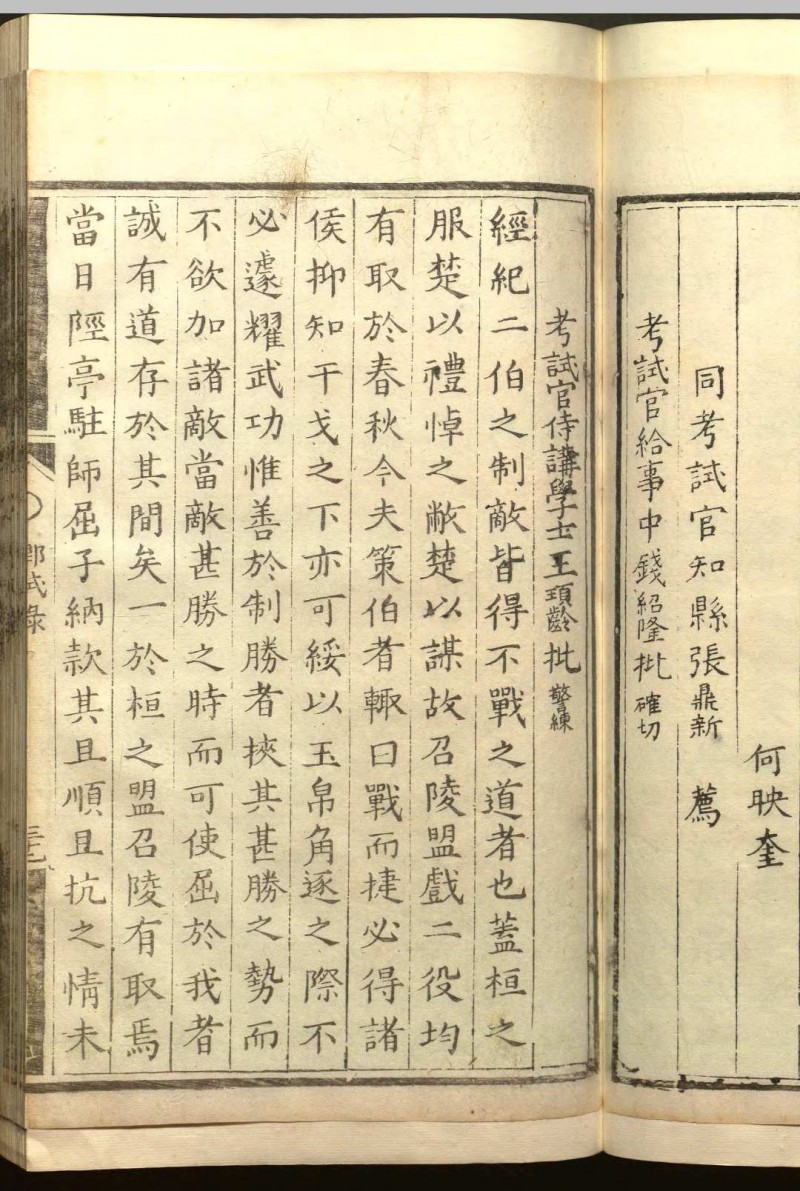 何映奎
同考試官知縣張鼎新　薦
考試官給事中錢紹隆批確切
考試官侍講學士王頊齡批警練
經紀二伯之制敵皆得不戰之道者也蓋桓之
服楚以禮悼之敝楚以謀故召陵盟戲二役均
有取於春秋今夫策伯者輒曰戰而捷必得諸
侯抑知干戈之下亦可綏以玉帛角逐之際不
必遽耀武功惟善於制勝者挾其甚勝之勢而
不欲加諸敵當敵甚勝之時而可使屈於我者
誠有道存於其間矣一於桓之盟召陵有取焉
當日陘亭駐師屈子納款其且順且抗之情未